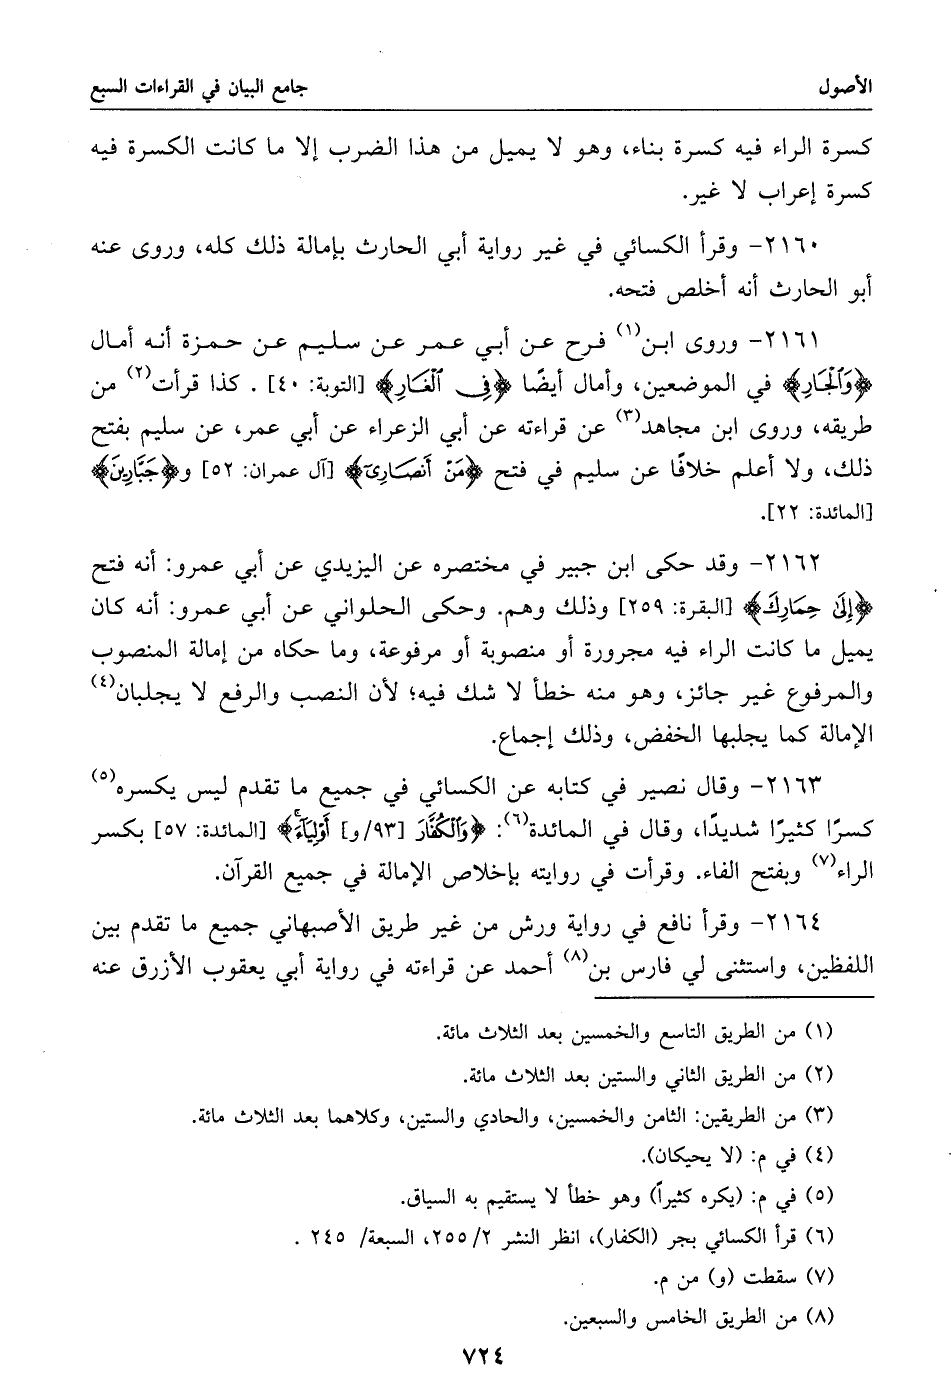 الأصول
جامع البيان في القراءات السبع
كسرة الراء فيه كسرة بناء، وهو لا يميل من هذا الضرب إلا ما كانت الكسرة فيه
كسرة إعراب لا غير.
٢١٦٠- وقرأ الكسائي في غير رواية أبي الحارث بإمالة ذلك كله، وروى عنه
أبو الحارث أنه أخلص فتحه.
٢١٦١- وروى ابن(١) فرح عن أبي عمر عن سليم عن حمزة أنه أمال
﴿وَٱلْجَارِ﴾ في الموضعين، وأمال أيضًا ﴿فِي ٱلْغَارِ﴾ [التوبة: ٤٠] . كذا قرأت(٢) من
طريقه، وروى ابن مجاهد(٣) عن قراءته عن أبي الزعراء عن أبي عمر، عن سليم بفتح
ذلك، ولا أعلم خلافًا عن سليم في فتح ﴿مَنْ أَنصَارِيٓ﴾ [آل عمران: ٥٢] و﴿جَبَّارِينَ﴾
[المائدة: ٢٢].
٢١٦٢- وقد حكى ابن جبير في مختصره عن اليزيدي عن أبي عمرو: أنه فتح
﴿إِلَىٰ حِمَارِكَ﴾ [البقرة: ٢٥٩] وذلك وهم. وحكى الحلواني عن أبي عمرو: أنه كان
يميل ما كانت الراء فيه مجرورة أو منصوبة أو مرفوعة، وما حكاه من إمالة المنصوب
والمرفوع غير جائز، وهو منه خطأ لا شك فيه؛ لأن النصب والرفع لا يجلبان(٤)
الإمالة كما يجلبها الخفض، وذلك إجماع.
٢١٦٣- وقال نصير في كتابه عن الكسائي في جميع ما تقدم ليس يكسره(٥)
كسرًا كثيرًا شديدًا، وقال في المائدة(٦): ﴿وَٱلْكُفَّارَ [٩٣/و] أَوْلِيَآءَ﴾ [المائدة: ٥٧] بكسر
الراء(٧) وبفتح الفاء. وقرأت في روايته بإخلاص الإمالة في جميع القرآن.
٢١٦٤- وقرأ نافع في رواية ورش من غير طريق الأصبهاني جميع ما تقدم بين
اللفظين، واستثنى لي فارس بن(٨) أحمد عن قراءته في رواية أبي يعقوب الأزرق عنه
(١) من الطريق التاسع والخمسين بعد الثلاث مائة.
(٢) من الطريق الثاني والستين بعد الثلاث مائة.
(٣) من الطريقين: الثامن والخمسين، والحادي والستين، وكلاهما بعد الثلاث مائة.
(٤) في م: (لا يحيكان).
(٥) في م: (يكره كثيراً) وهو خطأ لا يستقيم به السياق.
(٦) قرأ الكسائي بجر (الكفار)، انظر النشر ٢/ ٢٥٥، السبعة/ ٢٤٥ .
(٧) سقطت (و) من م.
(٨) من الطريق الخامس والسبعين.
٧٢٤